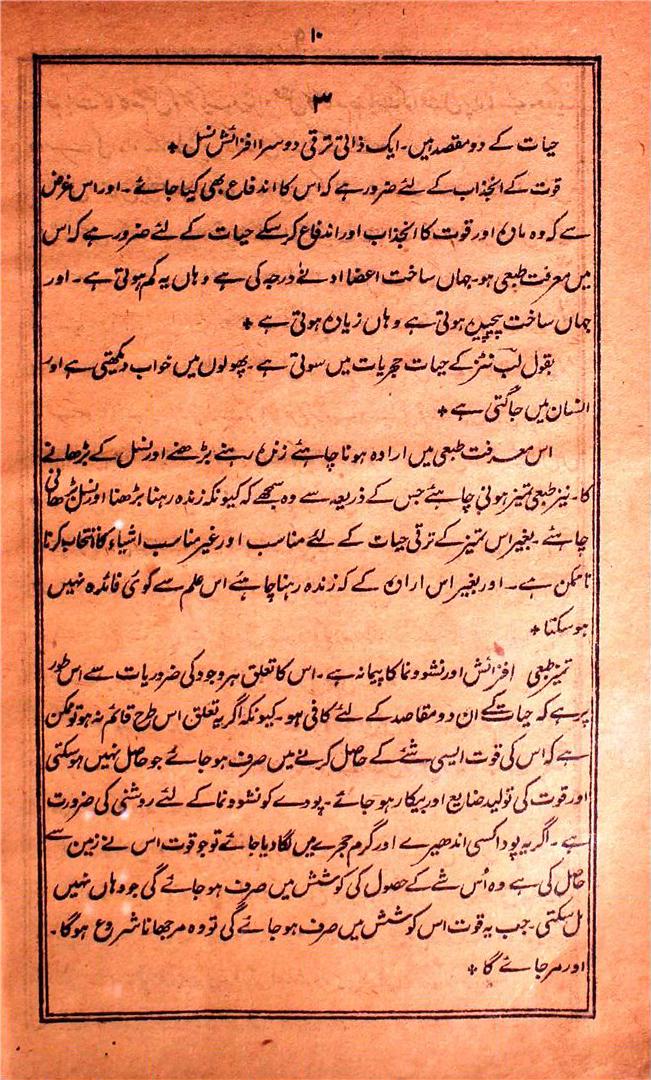 ۱۰
۳
حیات کے دو مقصد ہیں۔ ایک ذاتی ترقی دوسرا افزائش نسل ٭
قوت کے انجذاب کے لئے ضرور ہے کہ اس کا اندفاع بھی کیا جائے۔ اور اس غرض
سے کہ وہ مادہ اور قوت کا انجذاب اور اندفاع کر سکے حیات کے لئے ضرور ہے کہ اس
میں معرفت طبعی ہو۔ جہاں ساخت اعضا ادنے درجہ کی ہے وہاں یہ کم ہوتی ہے۔ اور
جہاں ساخت پیچیدہ ہوتی ہے وہاں زیادہ ہوتی ہے ٭
بقول لب نٹز کے حیات حجریات میں سوتی ہے۔ پھولوں میں خواب دیکھتی ہے اور
انسان میں جاگتی ہے ٭
اس معرفت طبعی میں ارادہ ہونا چاہئے زندہ رہنے بڑھنے اور نسل کے بڑھانے
کا۔ نیز طبعی تمیز ہونی چاہئے جس کے ذریعہ سے وہ سمجھے کہ کیونکر زندہ رہنا بڑھنا اور نسل بڑھانی
چاہئے۔ بغیر اس تمیز کے ترقی حیات کے لئے مناسب اور غیر مناسب اشیاء کا انتخاب کرنا
ناممکن ہے۔ اور بغیر اس ارادہ کے کہ زندہ رہنا چاہئے اس علم سے کوئی فائدہ نہیں
ہو سکتا ٭
تمیز طبعی افزائش اور نشوونما کا پیمانہ ہے۔ اس کا تعلق ہر وجود کی ضروریات سے اس طور
پر ہے کہ حیات کے ان دو مقاصد کے لئے کافی ہو۔ کیونکہ اگر یہ تعلق اس طرح قائم نہ ہو تو ممکن
ہے کہ اس کی قوت ایسی شئے کے حاصل کرنے میں صرف ہو جائے جو حاصل نہیں ہو سکتی
اور قوت کی تولید ضایع اور بیکار ہو جائے۔ پودے کو نشوونما کے لئے روشنی کی ضرورت
ہے۔ اگر یہ پودا کسی اندھیرے اور گرم حجرے میں لگا دیا جائے تو جو قوت اس نے زمین سے
حاصل کی ہے وہ اُس شے کے حصول کی کوشش میں صرف ہو جائے گی جو وہاں نہیں
مل سکتی۔ جب یہ قوت اس کوشش میں صرف ہو جائے گی تو وہ مرجھانا شروع ہوگا۔
اور مر جائے گا ٭